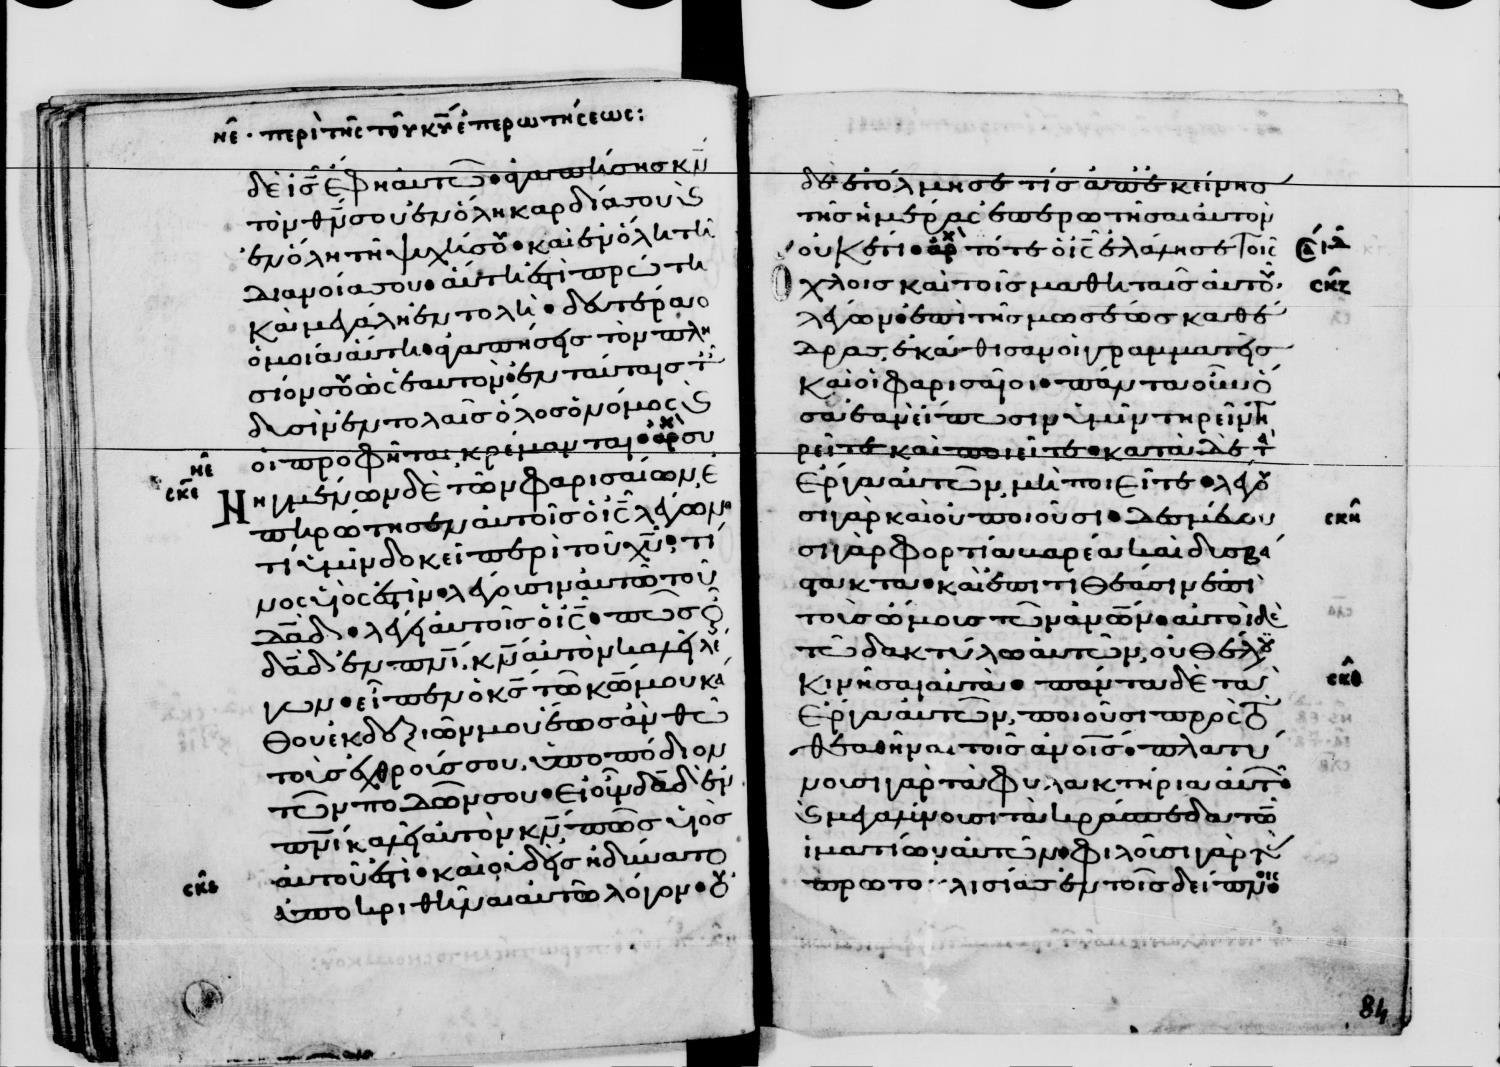 νε · περὶ τῆς τοῦ κυ ἐπερωτήσεως:
δὲ ις ἔφη αυτῶ· ἀγαπήσης κν
τὸν θν σου ἐν ὅλη καρδία σου ϗ
ἐν ὅλη τῆ ψυχῆ σου· καὶ ἐν ὅλη τῆ
διανοία σου· αὕτη ἐστὶ πρώτη
καὶ μεγάλη ἐντολή· δευτέρα
ὁμοία αὐτῆ· ἀγαπήσεις τὸν πλη
σίον σου ὡς ἑαυτόν· ἐν ταύταις τ
δυσὶν ἐντολαῖς ὅλος ὁ νόμος ϗ
οἱ προφῆται κρέμανται· ἀρχ συ
νε
σκε
νηγμένων δὲ τῶν φαρισαίων, ἐ
πηρώτησεν αὐτοῖς ὁ ις λέγων·
τί ὑμῖν δοκεῖ περὶ τοῦ χυ; τί
νος υἱός ἐστιν· λέγουσιν αὐτῶ τοῦ
δαδ· λέγει αὐτοῖς ὁ ις· πῶς
δαδ ἐν πνι, κν αὐτὸν καλεῖ λέ
γων· εἶπεν ὁ κς τῶ κω μου κά
θου ἐκ δεξιῶν μου ἕως ἂν θῶ
τοὺς ἐχθρούς σου, ὑποπόδιον
τῶν ποδῶν σου· εἰ οὖν δαδ ἐν
πνι καλεῖ αὐτὸν κν, πῶς υἱὸς
αὐτοῦ ἐστι· καὶ οὐδεὶς ἠδύνατο
σκς
ἀποκριθῆναι αὐτῶ λόγον· οὐ
δὲ ἐτόλμησέ τις ἀπ ἐκείνης
τῆς ἡμέρας ἐπερωτῆσαι αὐτὸν
οὐκέτι· ἀρχ τότε ὁ ις ἐλάλησε τοῖς
χλοις καὶ τοῖς μαθηταῖς αὐτοῦ,
σκζ
λέγων· ἐπὶ τῆς μωσέως καθέ
δρας, ἐκάθισαν οἱ γραμματεῖς
καὶ οἱ φαρισαῖοι· πάντα οὖν ὅ
σα ἐὰν εἴπωσιν ὑμῖν τηρεῖν τη
ρεῖτε καὶ ποιεῖτε· κατὰ δὲ τὰ
ἔργα αὐτῶν, μὴ ποιεῖτε· λέγου
σι γὰρ καὶ οὐ ποιοῦσι· δεσμεύου
σκη
σι γὰρ φορτία βαρέα καὶ δυσβά
στακτα· καὶ ἐπιτιθέασιν ἐπὶ
τοὺς ὤμους τῶν ανων· αὐτοὶ δὲ
τῶ δακτύλω αὐτῶν, οὐ θέλου
κινῆσαι αὐτά· πάντα δὲ τὰ
σκθ
ἔργα αὐτῶν, ποιοῦσι πρὸς τὸ
θεαθῆναι τοῖς ανοις· πλατύ
νουσι γὰρ τὰ φυλακτήρια αὐτῶν·
ϗ μεγαλύνουσι τὰ κράσπεδα τῶν
ἱματίων αὐτῶν· φιλοῦσι γὰρ τὴν
πρωτο λισίας ἐν τοῖς δείπνοις·
84